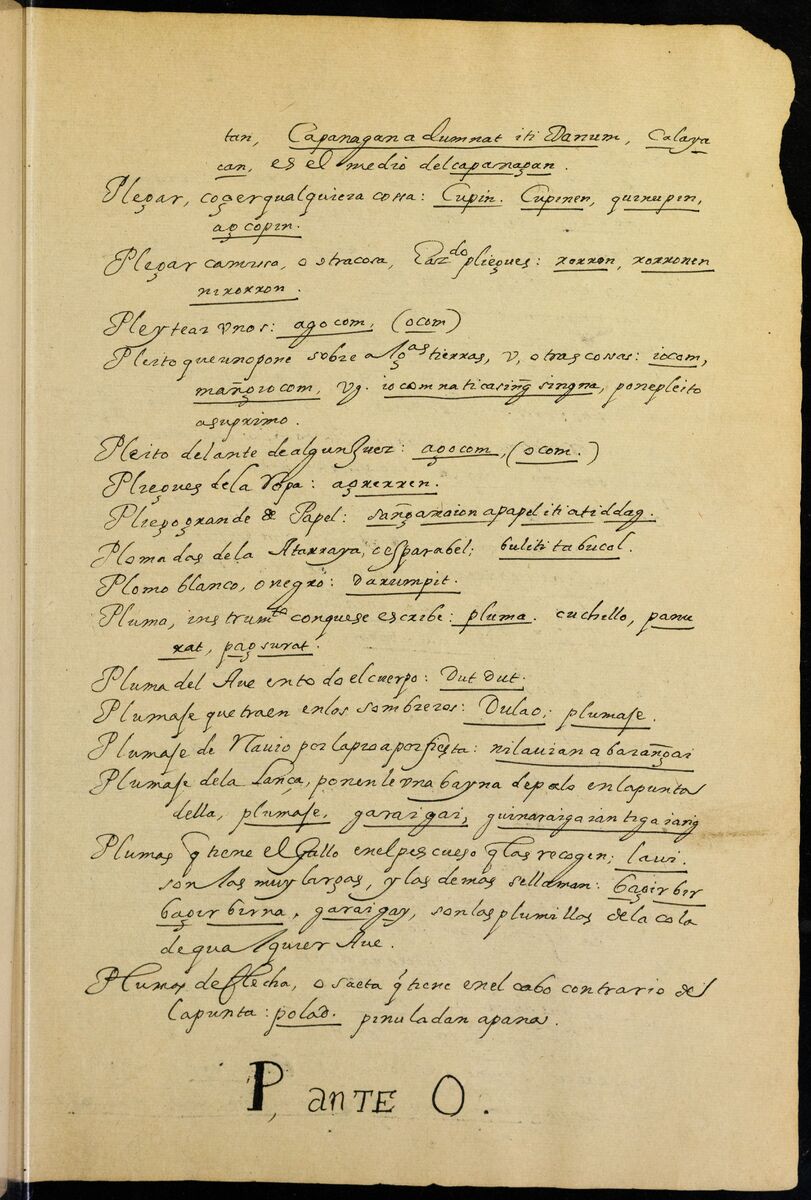 tan, Capanagan a dumnat iti Danum, Calaya
can, es el medio del capanagan.
Plegar, coger qualquiera cossa: Cupin. Cupinen, quinupin,
agcopin.
Plegar camisa, o otra cosa, haz.do pliegues: xorxon, xorxonen
nixorxon.
Pleytear vnos: agocom, (ocom)
Pleito que uno pone sobre a lg.as tierras, v, otras cossas: iocom,
mang̃iocom, vg. iocom na ti casing̃ singna, pone pleito
a su primo.
Pleito delante de algun Juez: agocom, (ocom.)
Pliegues de la Ropa: agxerxen.
Pliego grande de Papel: sang̃araion a papel iti atiddag.
Plomadas de la Atarraya, o esparabel; buliti tabucol.
Plomo blanco, o negro: Darumpit.
Pluma, instrum.to conque se escribe: pluma. cuchello, panu
rat, pagsurat.
Pluma del Ave en todo el cuerpo: Dut dut.
Plumaje que traen en los sombreros: Dulao; plumaje.
Plumaje de Navio por la proa por fiesta: nilauian a barang̃ai
Plumaje de la Lança, ponenle vna bayna de palo en la punta
della, plumaje, garaigai, guinaraigaian ti gaiang
Plumas q̃ tiene el Gallo en el pescueso q̃ las recogen; laui.
son las muy largas, y las demas se llaman: bagir bir
bagir birna, garaigay, son las plumillas de la cola
de qualquier Ave.
Plumas de flecha, o saeta q̃ tiene en el cabo contrario de
la punta: polad. pinuladan a pana.
P, anTE O.